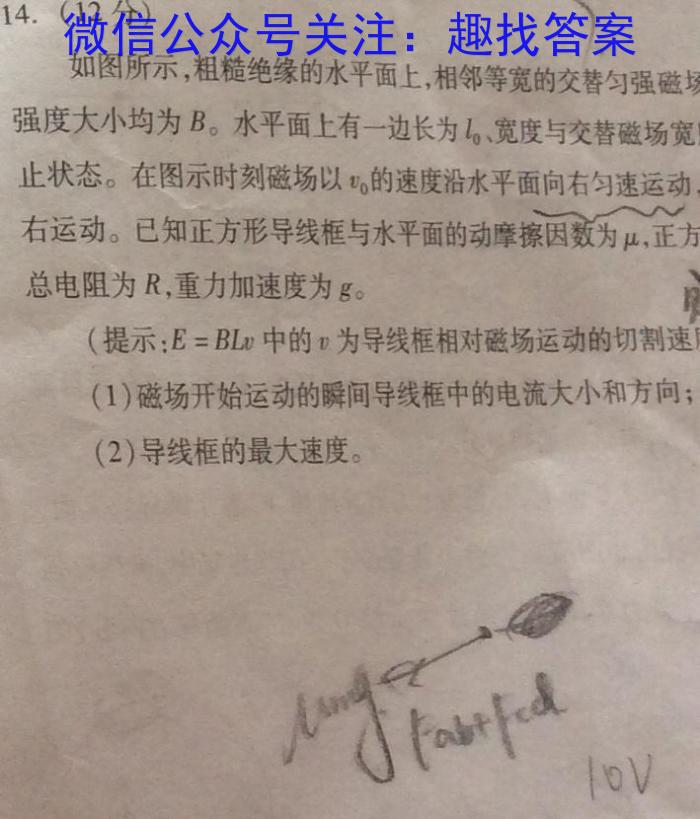 14.（12分）
微信公众号关注：趣找答案
如图所示,粗糙绝缘的水平面上,相邻等宽的交替匀强磁场
强度大小均为B。水平面上有一边长为l₀、宽度与交替磁场宽
止状态。在图示时刻磁场以v₀的速度沿水平面向右匀速运动,
右运动。已知正方形导线框与水平面的动摩擦因数为μ,正方
总电阻为R,重力加速度为g。
(提示:E=BLv中的v为导线框相对磁场运动的切割速
(1)磁场开始运动的瞬间导线框中的电流大小和方向;
(2)导线框的最大速度。
μmg
Fab+Fcd
10V